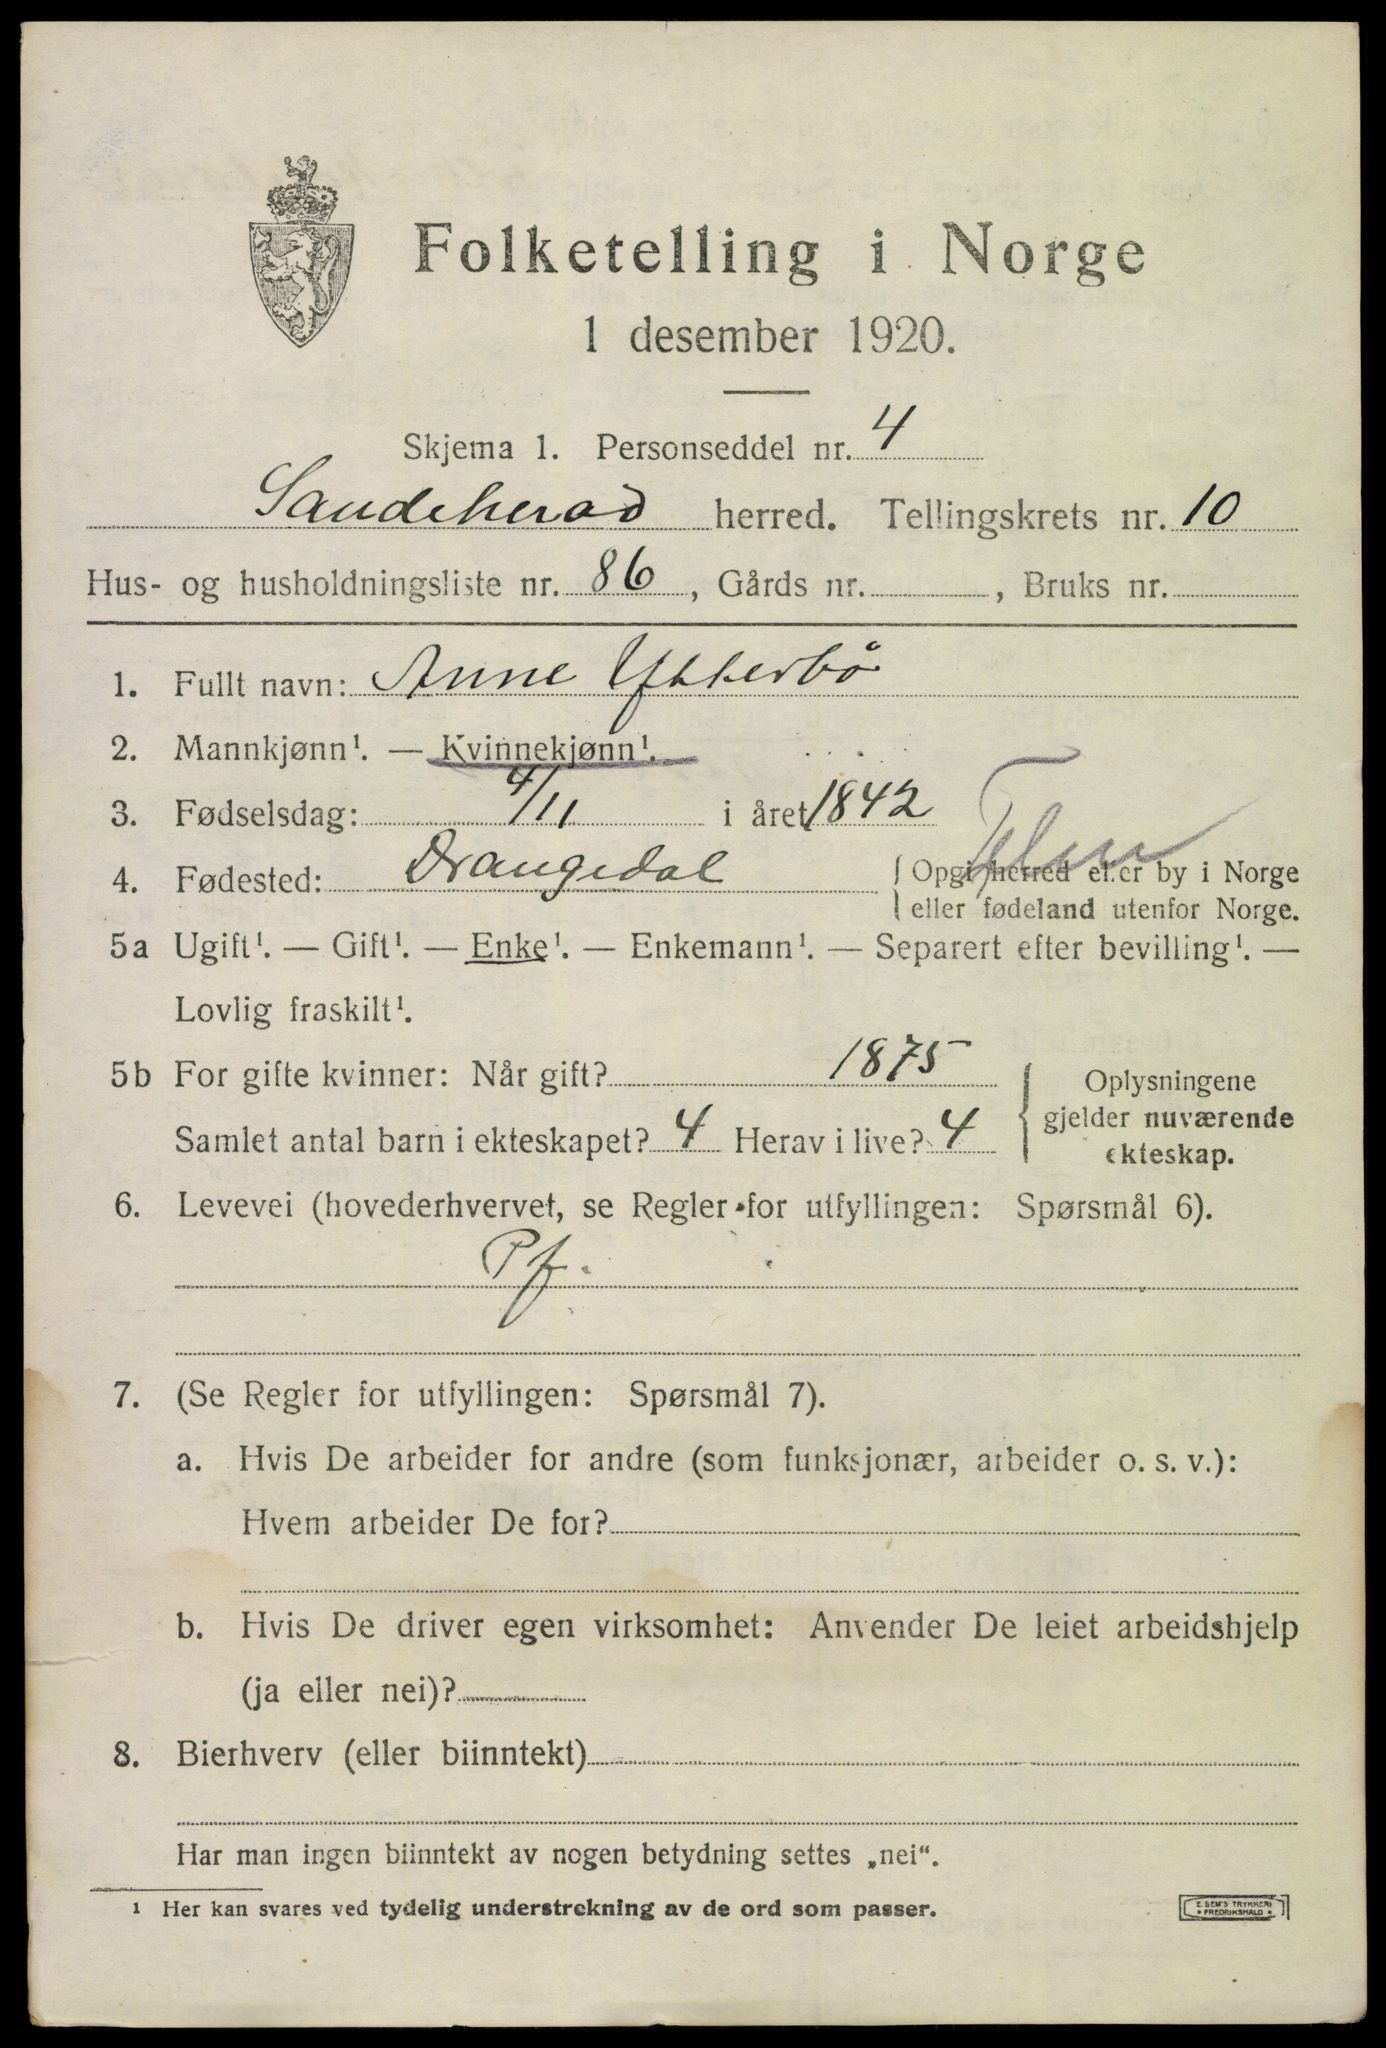 Folketelling i Norge
1 desember 1920.
Skjema 1. Personseddel nr. 4
Sandeherad herred. Tellingskrets nr. 10
Hus- og husholdningsliste nr. 86, Gårds nr. , Bruks nr.
1. Fullt navn: Anne Ytterbö
2. Mannkjønn¹. — Kvinnekjønn¹.
3. Fødselsdag: 4/11 i året 1842
4. Fødested: Drangedal { Opgi herred eller by i Norge
eller fødeland utenfor Norge.
5a Ugift¹. — Gift¹. — Enke¹. — Enkemann¹. — Separert efter bevilling¹. —
Lovlig fraskilt¹.
5b For gifte kvinner: Når gift? 1875
Samlet antal barn i ekteskapet? 4 Herav i live? 4
Oplysningene
gjelder nuværende
ekteskap.
6. Levevei (hovederhvervet, se Regler for utfyllingen: Spørsmål 6).
Pf.
7. (Se Regler for utfyllingen: Spørsmål 7).
a. Hvis De arbeider for andre (som funksjonær, arbeider o. s. v.):
Hvem arbeider De for?
b. Hvis De driver egen virksomhet: Anvender De leiet arbeidshjelp
(ja eller nei)?
8. Bierhverv (eller biinntekt)
Har man ingen biinntekt av nogen betydning settes „nei“.
¹ Her kan svares ved tydelig understrekning av de ord som passer.
E. SEM'S TRYKKERI
FREDRIKSHALD